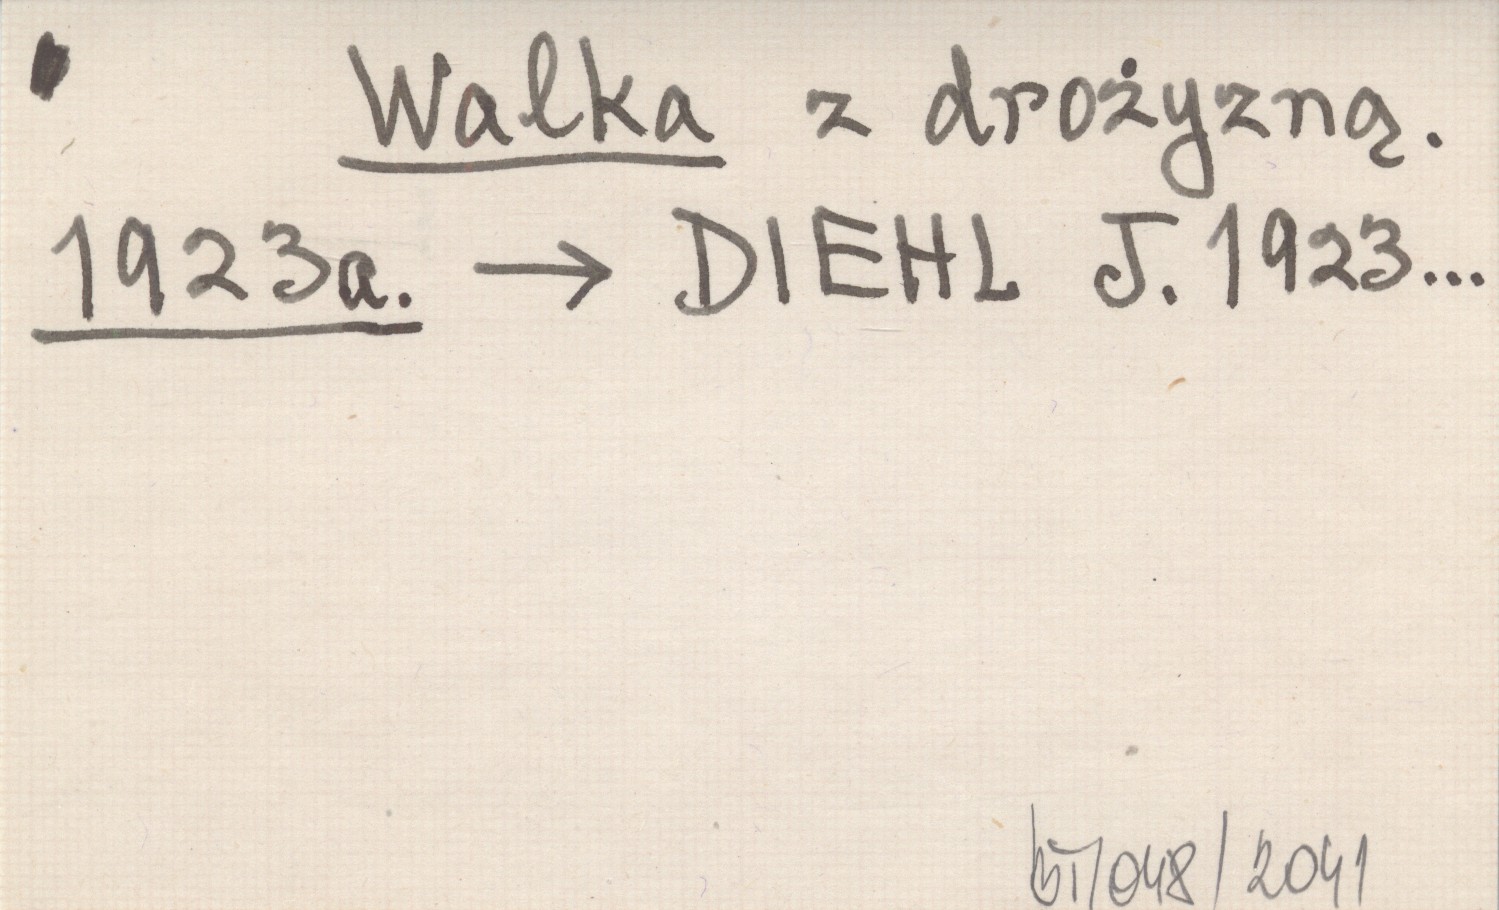 Walka z drożyzną.
1923a. → DIEHL J. 1923...
bT/048/2041